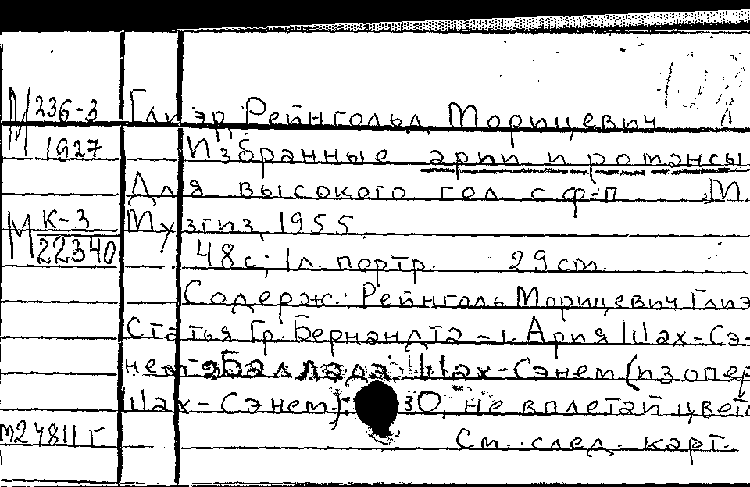 М 236-3 Глиэр Рейнгольд Морицевич
1927 Избранные арии и романсы
Для высокого гол с ф-п М.
М К-3 Музгиз, 1955
22340 48 с; 1 л. портр. 29 cm
Содерж: Рейнголь Морицевич Глиэ
Статья Гр. Бернандта – 1. Ария Шах-Сэ-
нем Баллада Шах-Сэнем (из опер
Шах-Сэнем): 3О, не вплетай цвет
m24811 г См. след. карт.